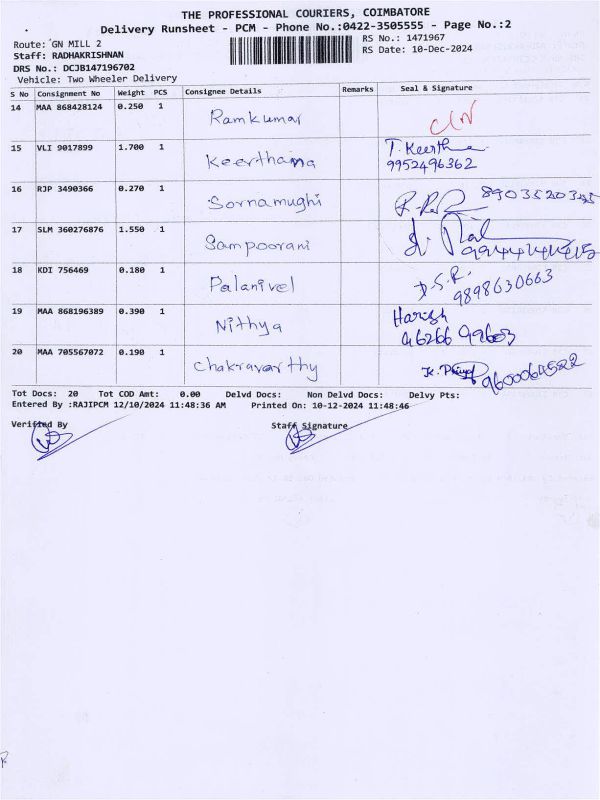 THE PROFESSIONAL COURIERS, COIMBATORE
Delivery Runsheet - PCM - Phone No.:0422-3505555 - Page No.:2
Route: GN MILL 2 RS No.: 1471967
Staff: RADHAKRISHNAN RS Date: 10-Dec-2024
DRS No.: DCJB147196702
Vehicle: Two Wheeler Delivery
S No Consignment No Weight PCS Consignee Details Remarks Seal & Signature
14 MAA 868428124 0.250 1 Ramkumar
15 VLI 9017899 1.700 1 Keerthana T. Keerthana
9952496362
16 RJP 3490366 0.270 1 Sornamughi
17 SLM 360276876 1.550 1 Sampoorani
18 KDI 756469 0.180 1 Palanivel D.S.R.
9898630663
19 MAA 868196389 0.390 1 Nithya Harish
96266 99603
20 MAA 705567072 0.190 1 Chakravarthy 9600064522
Tot Docs: 20 Tot COD Amt: 0.00 Delvd Docs: Non Delvd Docs: Delvy Pts:
Entered By :RAJIPCM 12/10/2024 11:48:36 AM Printed On: 10-12-2024 11:48:46
Verified By Staff Signature